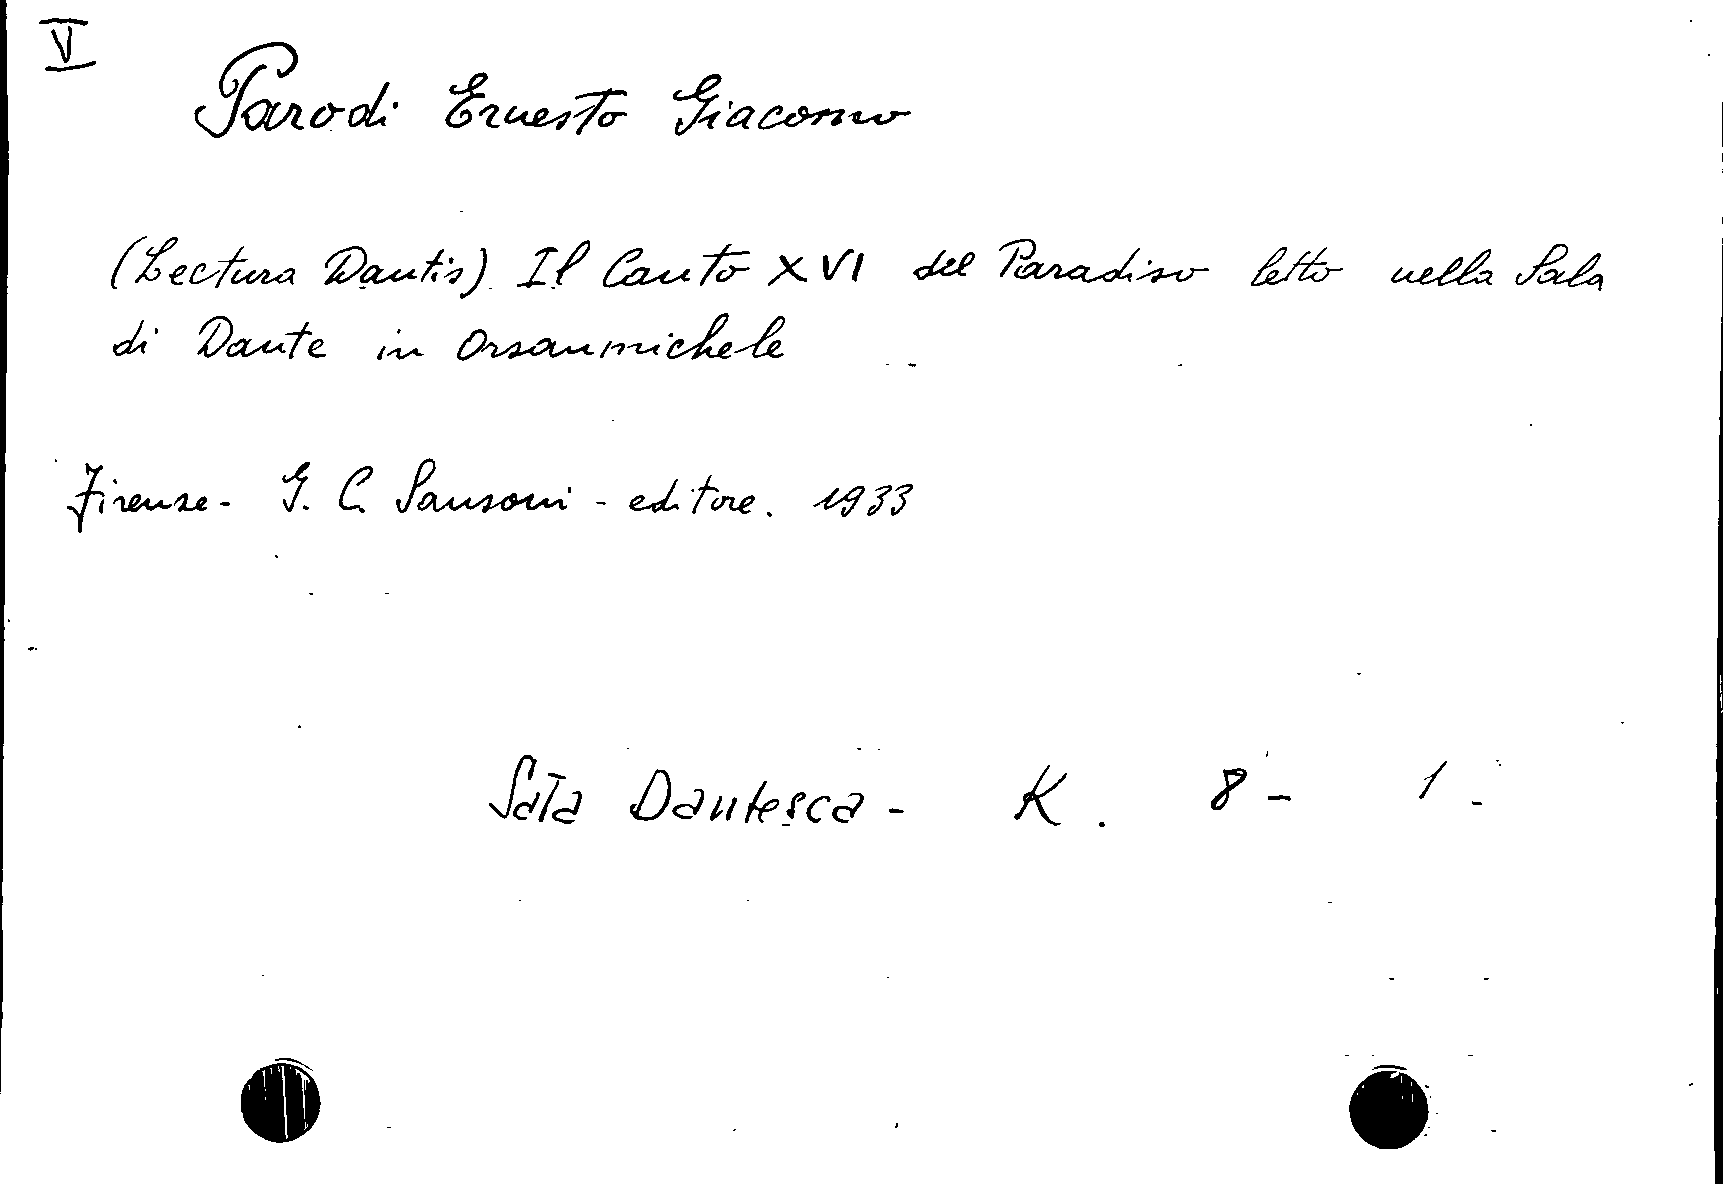 V
Parodi Ernesto Giacomo
(Lectura Dantis) Il Canto XVI del Paradiso letto nella Sala
di Dante in Orsanmichele
Firenze - G. C. Sansoni - editore. 1933
Sala Dantesca - K. 8 - 1 -